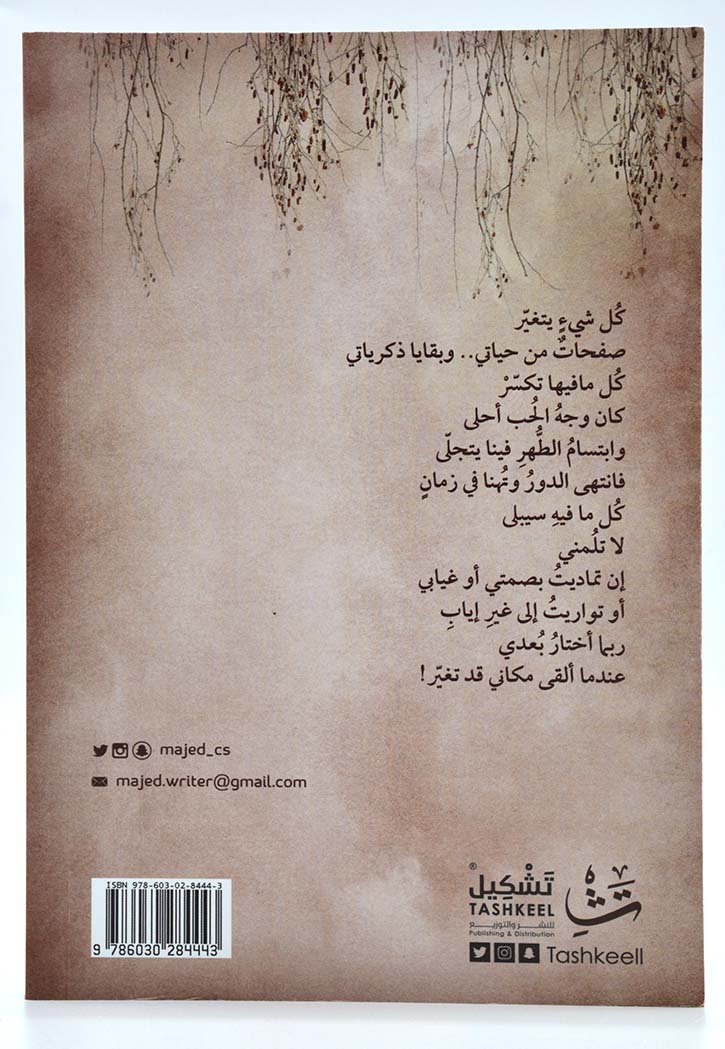 كُل شيءٍ يتغيّر
صفحاتٌ من حياتي.. وبقايا ذكرياتي
كُل مافيها تكسّرْ
كان وجهُ الحُب أحلى
وابتسامُ الطُّهرِ فينا يتجلّى
فانتهى الدورُ وتُهنا في زمانٍ
كُل ما فيهِ سيبلى
لا تلُمني
إن تماديتُ بصمتي أو غيابي
أو تواريتُ إلى غيرِ إيابِ
ربما أختارُ بُعدي
عندما ألقى مكاني قد تغيّر!
majed_cs
majed.writer@gmail.com
ISBN 978-603-02-8444-3
9 786030 284443
تَشْكِيل®
TASHKEEL
للنشر والتوزيع
Publishing & Distribution
Tashkeell